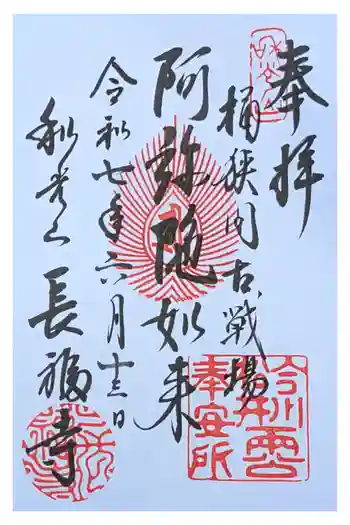 奉拝
桶狭間古戦場
阿弥陀如来
令和七年六月十三日
和光山
長福寺
今川
奉安所